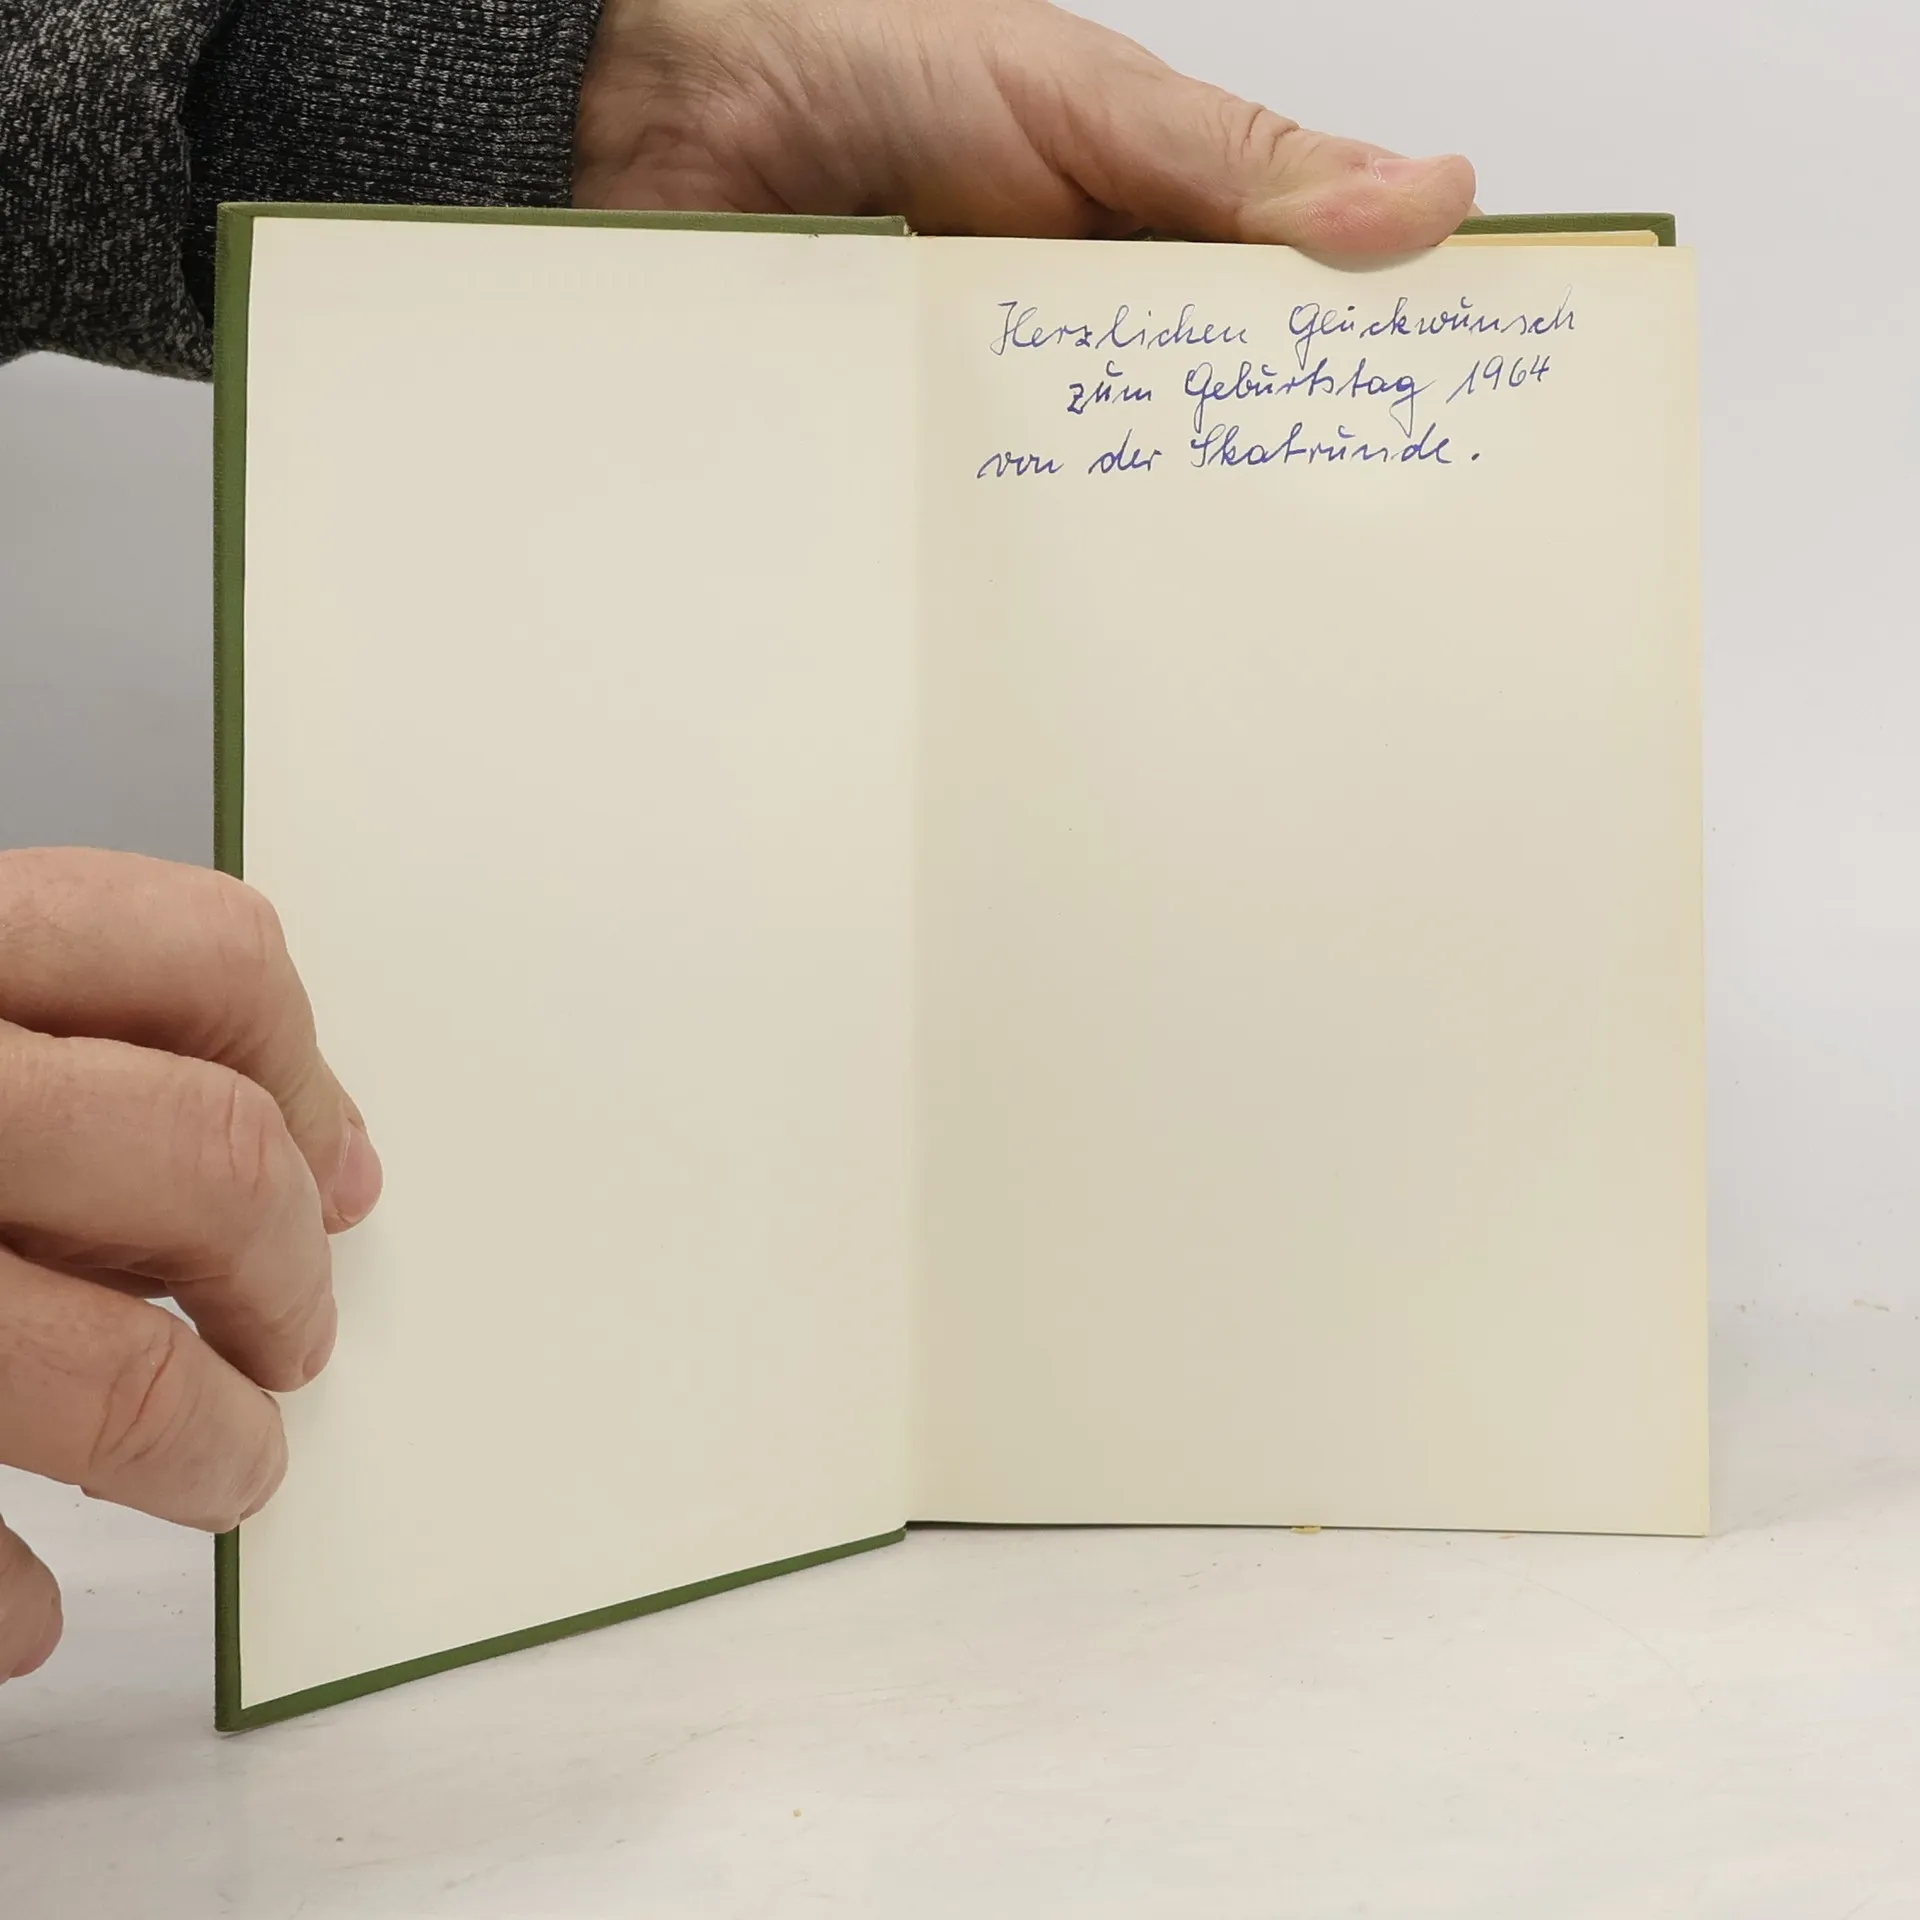 Herzlichen Glückwunsch
zum Geburtstag 1964
von der Skatrunde.